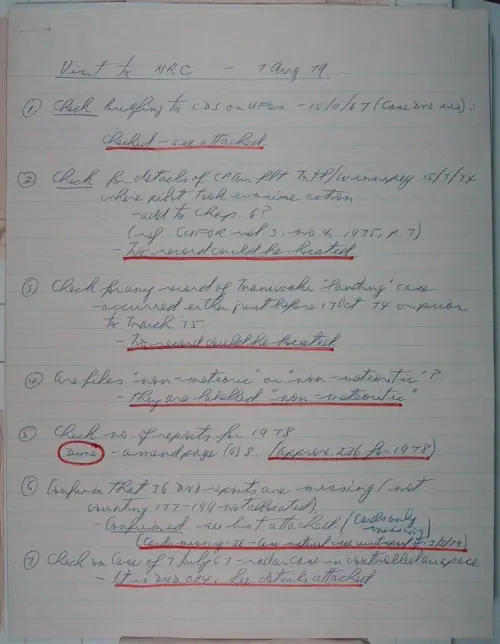 Visit to NRC - 7 Aug 79.
① Check briefing to CDS on UFOs - 15/11/67 (Case DND 222):
checked - see attached.
② Check for details of CPAir flt Mtl/Winnipeg 15/7/74
where pilot took evasive action
- add to Chap. 6?
(ref. CUFOR vol. 3, no. 4, 1975, p. 7)
- No record could be located
③ Check for any record of Maniwaki "landing" case
- occurred either just before 17 Oct 74 or prior
to March '75.
- No record could be located
④ Are files "non-meteoric" or "non-meteoritic"?
- They are labelled "non-meteoritic"
⑤ Check no. of reports for 1978
Done - amend page 8. (approx. 236 for 1978)
⑥ Confirm that 36 DND reports are missing (not
counting 177-199 not allocated)
- Confirmed - see list attached (Cards only
missing)
(Cards missing - 36 - see visit report of
⑦ Check on case of 7 July 67 - radar case in controlled airspace
- It is DND 084. See details attached